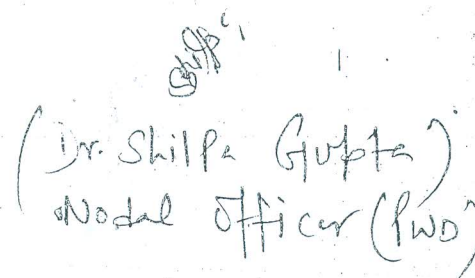 Shilpa
(Dr. Shilpa Gupta)
Nodal Officer (PWD)